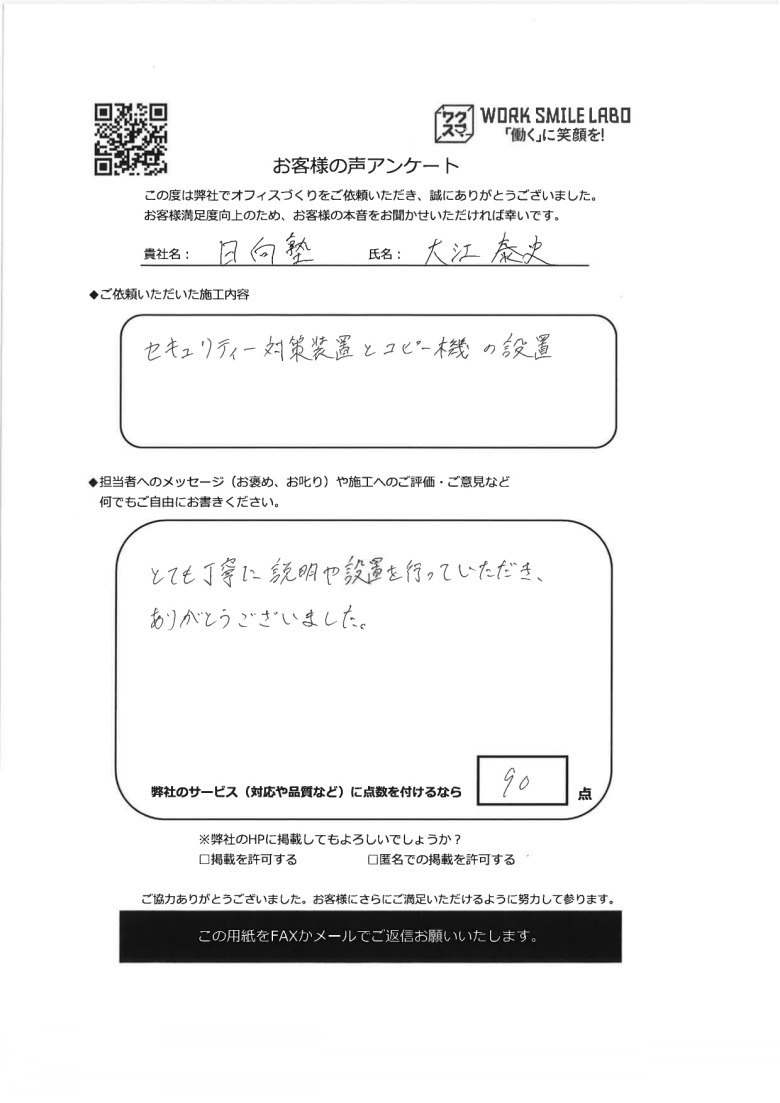 ワクスマ
WORK SMILE LABO
「働く」に笑顔を!
お客様の声アンケート
この度は弊社でオフィスづくりをご依頼いただき、誠にありがとうございました。
お客様満足度向上のため、お客様の本音をお聞かせいただければ幸いです。
貴社名: 日向塾 氏名: 大江 泰史
◆ご依頼いただいた施工内容
セキュリティー対策装置とコピー機の設置
◆担当者へのメッセージ(お褒め、お叱り)や施工へのご評価・ご意見など
何でもご自由にお書きください。
とても丁寧に説明や設置を行っていただき、
ありがとうございました。
弊社のサービス(対応や品質など)に点数を付けるなら 90 点
※弊社のHPに掲載してもよろしいでしょうか?
□掲載を許可する □匿名での掲載を許可する
ご協力ありがとうございました。お客様にさらにご満足いただけるように努力して参ります。
この用紙をFAXかメールでご返信お願いいたします。